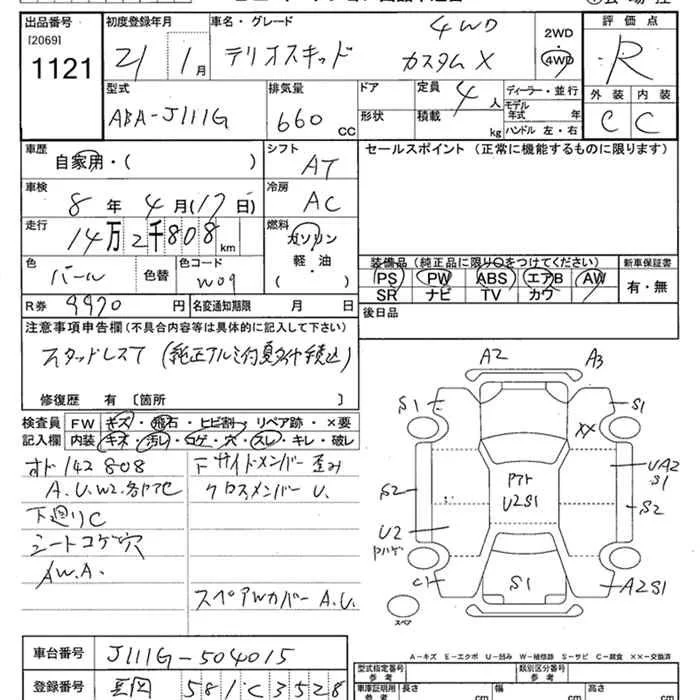 出品番号 初度登録年月 車名・グレード 2WD 評価点
[2069] 4WD
1121 21 1月 テリオスキッド カスタムX 4WD R
型式 排気量 ドア 定員 4人 ディーラー・並行 外装 内装
ABA-J111G 660CC 形状 積載 kg モデル年式 年 C C
ハンドル 左・右
車歴 シフト セールスポイント (正常に機能するものに限ります)
自家用・( ) AT
車検 冷房
8年4月(17日) AC
走行 燃料
14万2千808km ガソリン
軽・油
( )
色 色替 色コード 装備品(純正品に限り○をつけてください) 新車保証書
パール W09 PS PW ABS エアB AW 有・無
SR ナビ TV カワ
R券 9970円 名変通知期限 月 日 後日品
注意事項申告欄(不具合内容等は具体的に記入して下さい)
スタッドレスT (純正アルミ付夏タイヤ積込)
修復歴 有 〔箇所 〕
検査員 FW キズ・飛石・ヒビ割・リペア跡・×要
記入欄 内装 キズ・汚レ・コゲ・穴・スレ・キレ・破レ
オド142808 Fサイドメンバー歪み
A.U.W2.各所C クロスメンバーU.
下廻りC
シートコゲ穴
AW.A.
スペアWカバーA.U.
A2 A3
S1 S1
××
UA2
S1
S2 アフト U2S1 S2
U2
C1 S1 A2S1
スペア
A－キズ E－エクボ U－凹み W－補修跡 S－サビ C－腐食 ××－交換済
車台番号 J111G-504015
型式指定番号 類別区分番号
参考 参考
登録番号 581 C 3528
車庫証明用 長さ cm 幅 cm 高さ cm
参考